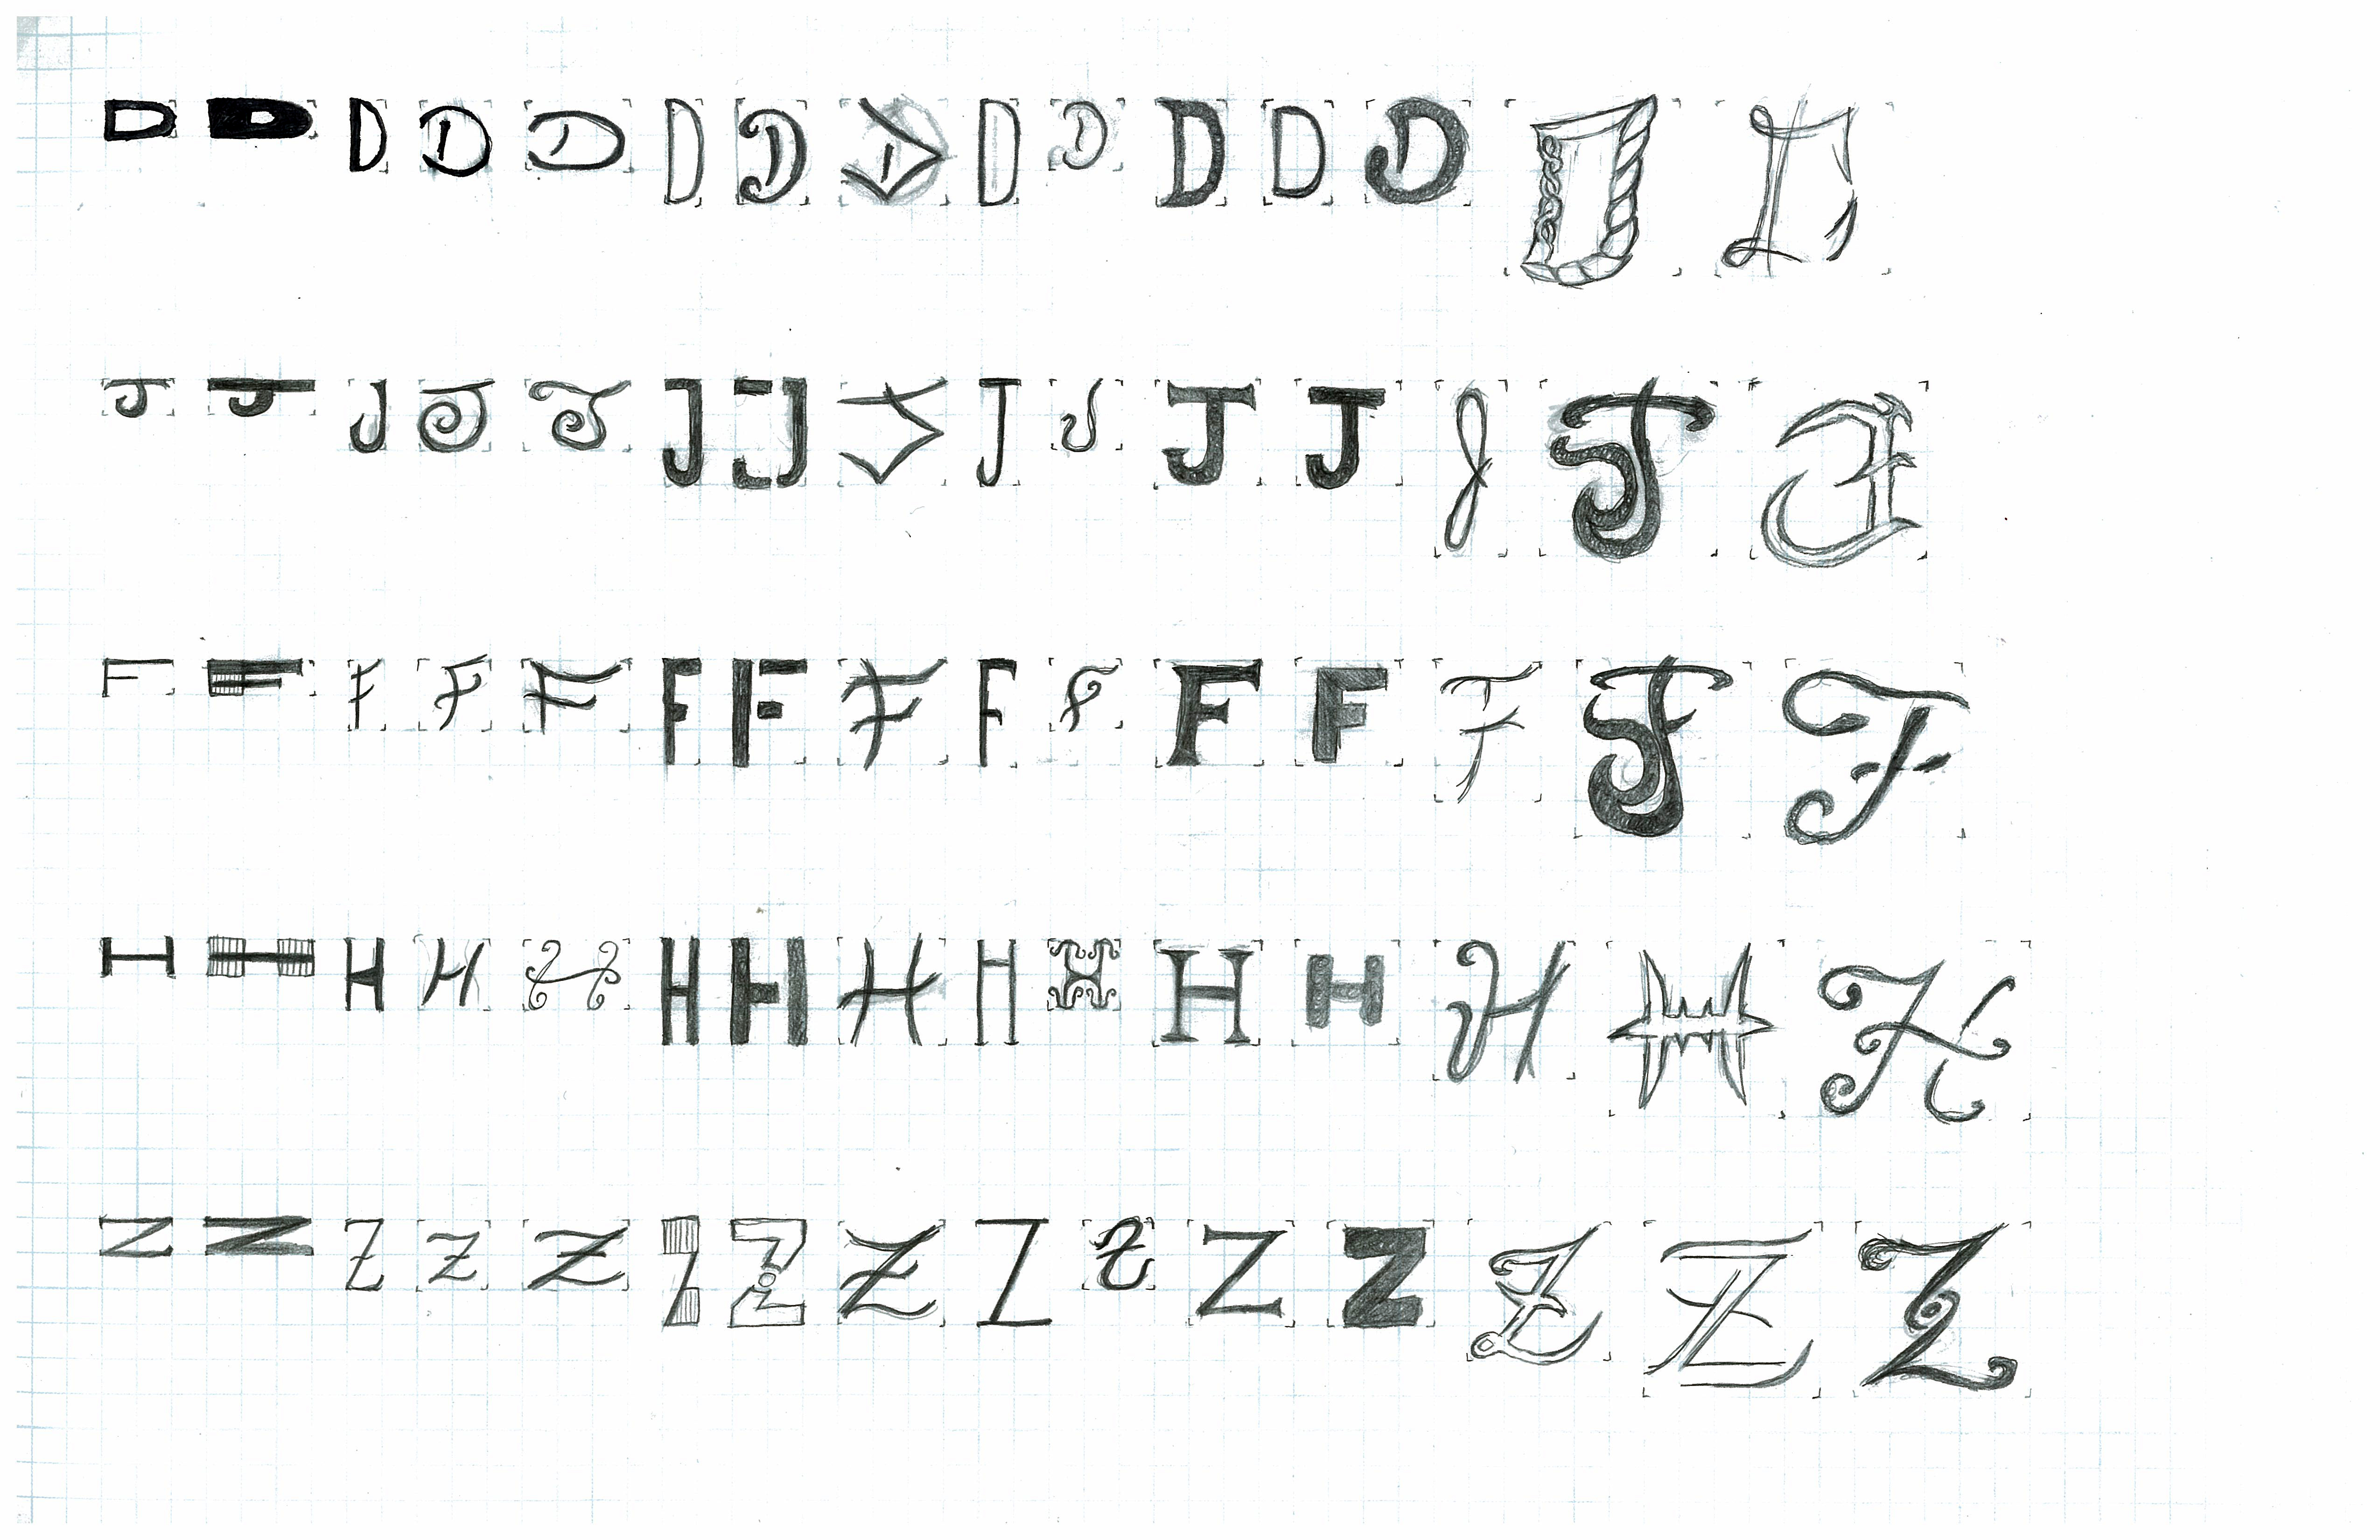 D D D D D D D D D D D D D D D
J J J J J J J J J J J J J J J
F F F F F F F F F F F F F F F
H H H H H H H H H H H H H H H
Z Z Z Z Z Z Z Z Z Z Z Z Z Z Z